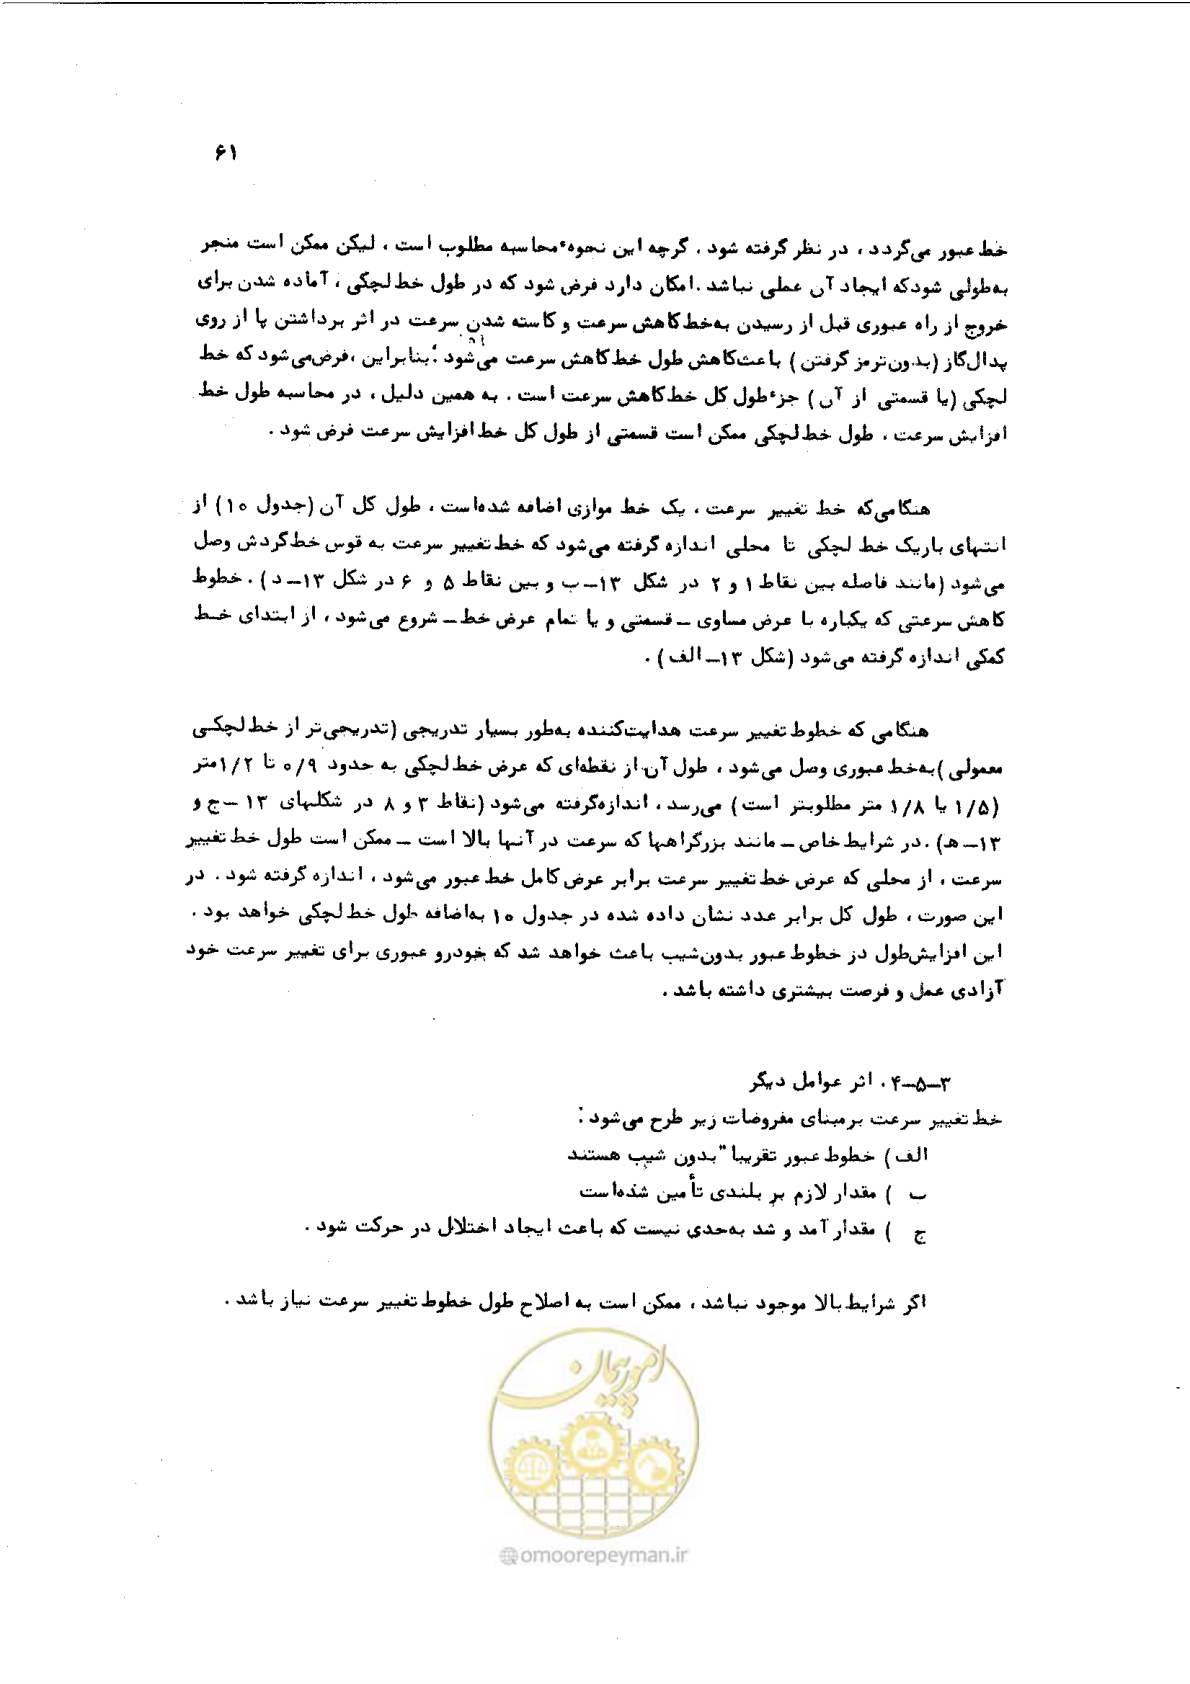 ۶۱
خط عبور می‌گردد ، در نظر گرفته شود . گرچه این نحوهٔ محاسبه مطلوب است ، لیکن ممکن است منجر
به‌طولی شودکه ایجاد آن عملی نباشد .امکان دارد فرض شود که در طول خط لچکی ، آماده شدن برای
خروج از راه عبوری قبل از رسیدن به‌خط‌کاهش سرعت و کاسته شدن سرعت در اثر برداشتن پا از روی
پدال‌گاز (بدون‌ترمز گرفتن) باعث‌کاهش طول خط‌کاهش سرعت می‌شود ؛بنابراین ،فرض‌می‌شود که خط
لچکی (یا قسمتی از آن) جزءطول کل خط‌کاهش سرعت است . به همین دلیل ، در محاسبه طول خط
افزایش سرعت ، طول خط‌لچکی ممکن است قسمتی از طول کل خط‌افزایش سرعت فرض شود .
هنگامی‌که خط تغییر سرعت ، یک خط موازی اضافه شده‌است ، طول کل آن (جدول ۱۰) از
انتهای باریک خط لچکی تا محلی اندازه گرفته می‌شود که خط‌تغییر سرعت به قوس خط‌گردش وصل
می‌شود (مانند فاصله بین نقاط ۱ و ۲ در شکل ۱۳ــ ب و بین نقاط ۵ و ۶ در شکل ۱۳ــ د) . خطوط
کاهش سرعتی که یکباره با عرض مساوی ــ قسمتی و یا تمام عرض خط ــ شروع می‌شود ، از ابتدای خط
کمکی اندازه گرفته می‌شود (شکل ۱۳ــ الف) .
هنگامی که خطوط تغییر سرعت هدایت‌کننده به‌طور بسیار تدریجی (تدریجی‌تر از خط‌لچکی
معمولی )به‌خط عبوری وصل می‌شود ، طول آن از نقطه‌ای که عرض خط‌لچکی به حدود ۰/۹ تا ۱/۲متر
(۱/۵ یا ۱/۸ متر مطلوبتر است) می‌رسد ، اندازه‌گرفته می‌شود (نقاط ۳ و ۸ در شکلهای ۱۳ ــ ج و
۱۳ــ هـ) .در شرایط خاص ــ مانند بزرگراهها که سرعت در آنها بالا است ــ ممکن است طول خط تغییر
سرعت ، از محلی که عرض خط تغییر سرعت برابر عرض کامل خط عبور می‌شود ، اندازه گرفته شود . در
این صورت ، طول کل برابر عدد نشان داده شده در جدول ۱۰ به‌اضافه طول خط لچکی خواهد بود .
این افزایش‌طول در خطوط عبور بدون‌شیب باعث خواهد شد که خودرو عبوری برای تغییر سرعت خود
آزادی عمل و فرصت بیشتری داشته باشد .
۳ــ۵ــ۴. اثر عوامل دیگر
خط تغییر سرعت برمبنای مفروضات زیر طرح می‌شود :
الف) خطوط عبور تقریبا" بدون شیب هستند
ب ) مقدار لازم بر بلندی تأمین شده‌است
ج ) مقدار آمد و شد به‌حدی نیست که باعث ایجاد اختلال در حرکت شود .
اگر شرایط بالا موجود نباشد ، ممکن است به اصلاح طول خطوط تغییر سرعت نیاز باشد .
امور پیمان
@omoorepeyman.ir